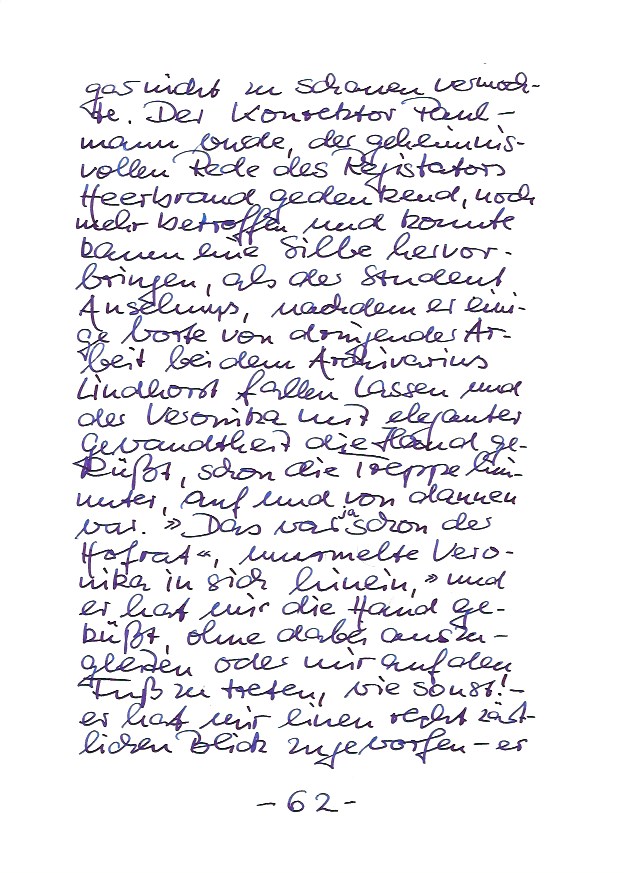 gar nicht zu schauen vermoch-
te. Der Konrektor Paul-
mann wurde, der geheimnis-
vollen Rede des Registrators
Heerbrand gedenkend, noch
mehr betroffen und konnte
kaum eine Silbe hervor-
bringen, als der Student
Anselmus, nachdem er eini-
ge Worte von dringender Ar-
beit bei dem Archivarius
Lindhorst fallen lassen und
der Veronika mit eleganter
Gewandtheit die Hand ge-
küßt, schon die Treppe hin-
unter, auf und von dannen
war. »Das war ja schon der
Hofrat“, murmelte Vero-
nika in sich hinein, »und
er hat mir die Hand ge-
küßt, ohne dabei auszu-
gleiten oder mir auf den
Fuß zu treten, wie sonst! –
er hat mir einen recht zärt-
lichen Blick zugeworfen – er
– 62 –